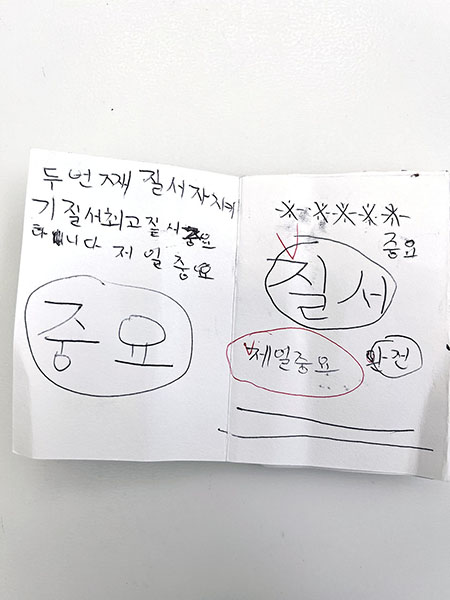 두번째 질서자치켜
기 질서최고 질서 중요
하빕니다 저일중요
중요
※※※※※
중요
질서
제일중요
안전